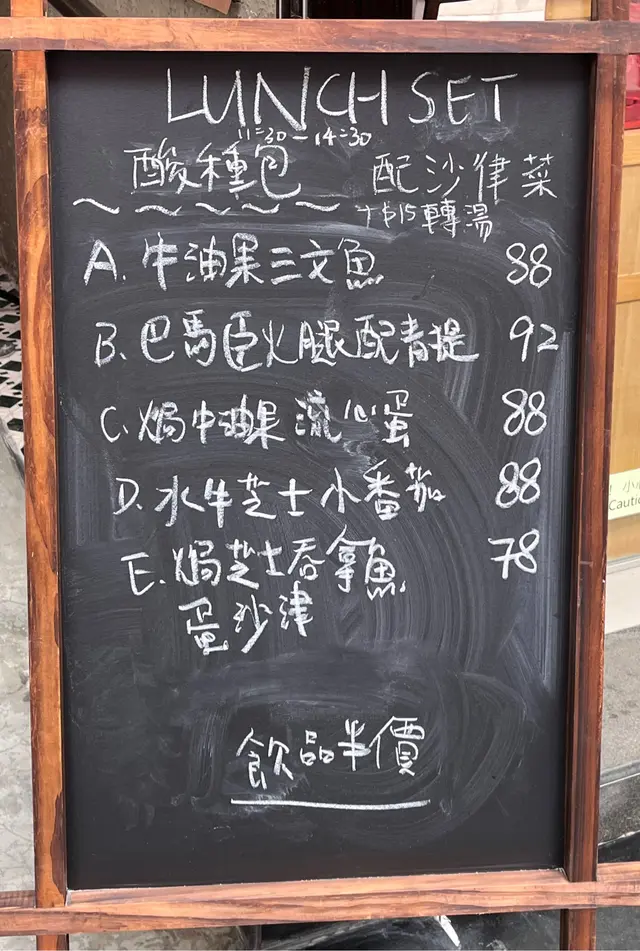 LUNCH SET
11:30 - 14:30
酸種包 配沙律菜
+$15轉湯
A. 牛油果三文魚 88
B. 巴馬臣火腿配青提 92
C. 焗牛油果流心蛋 88
D. 水牛芝士小番茄 88
E. 焗芝士吞拿魚 78
蛋沙律
飲品半價
小心
Cauti